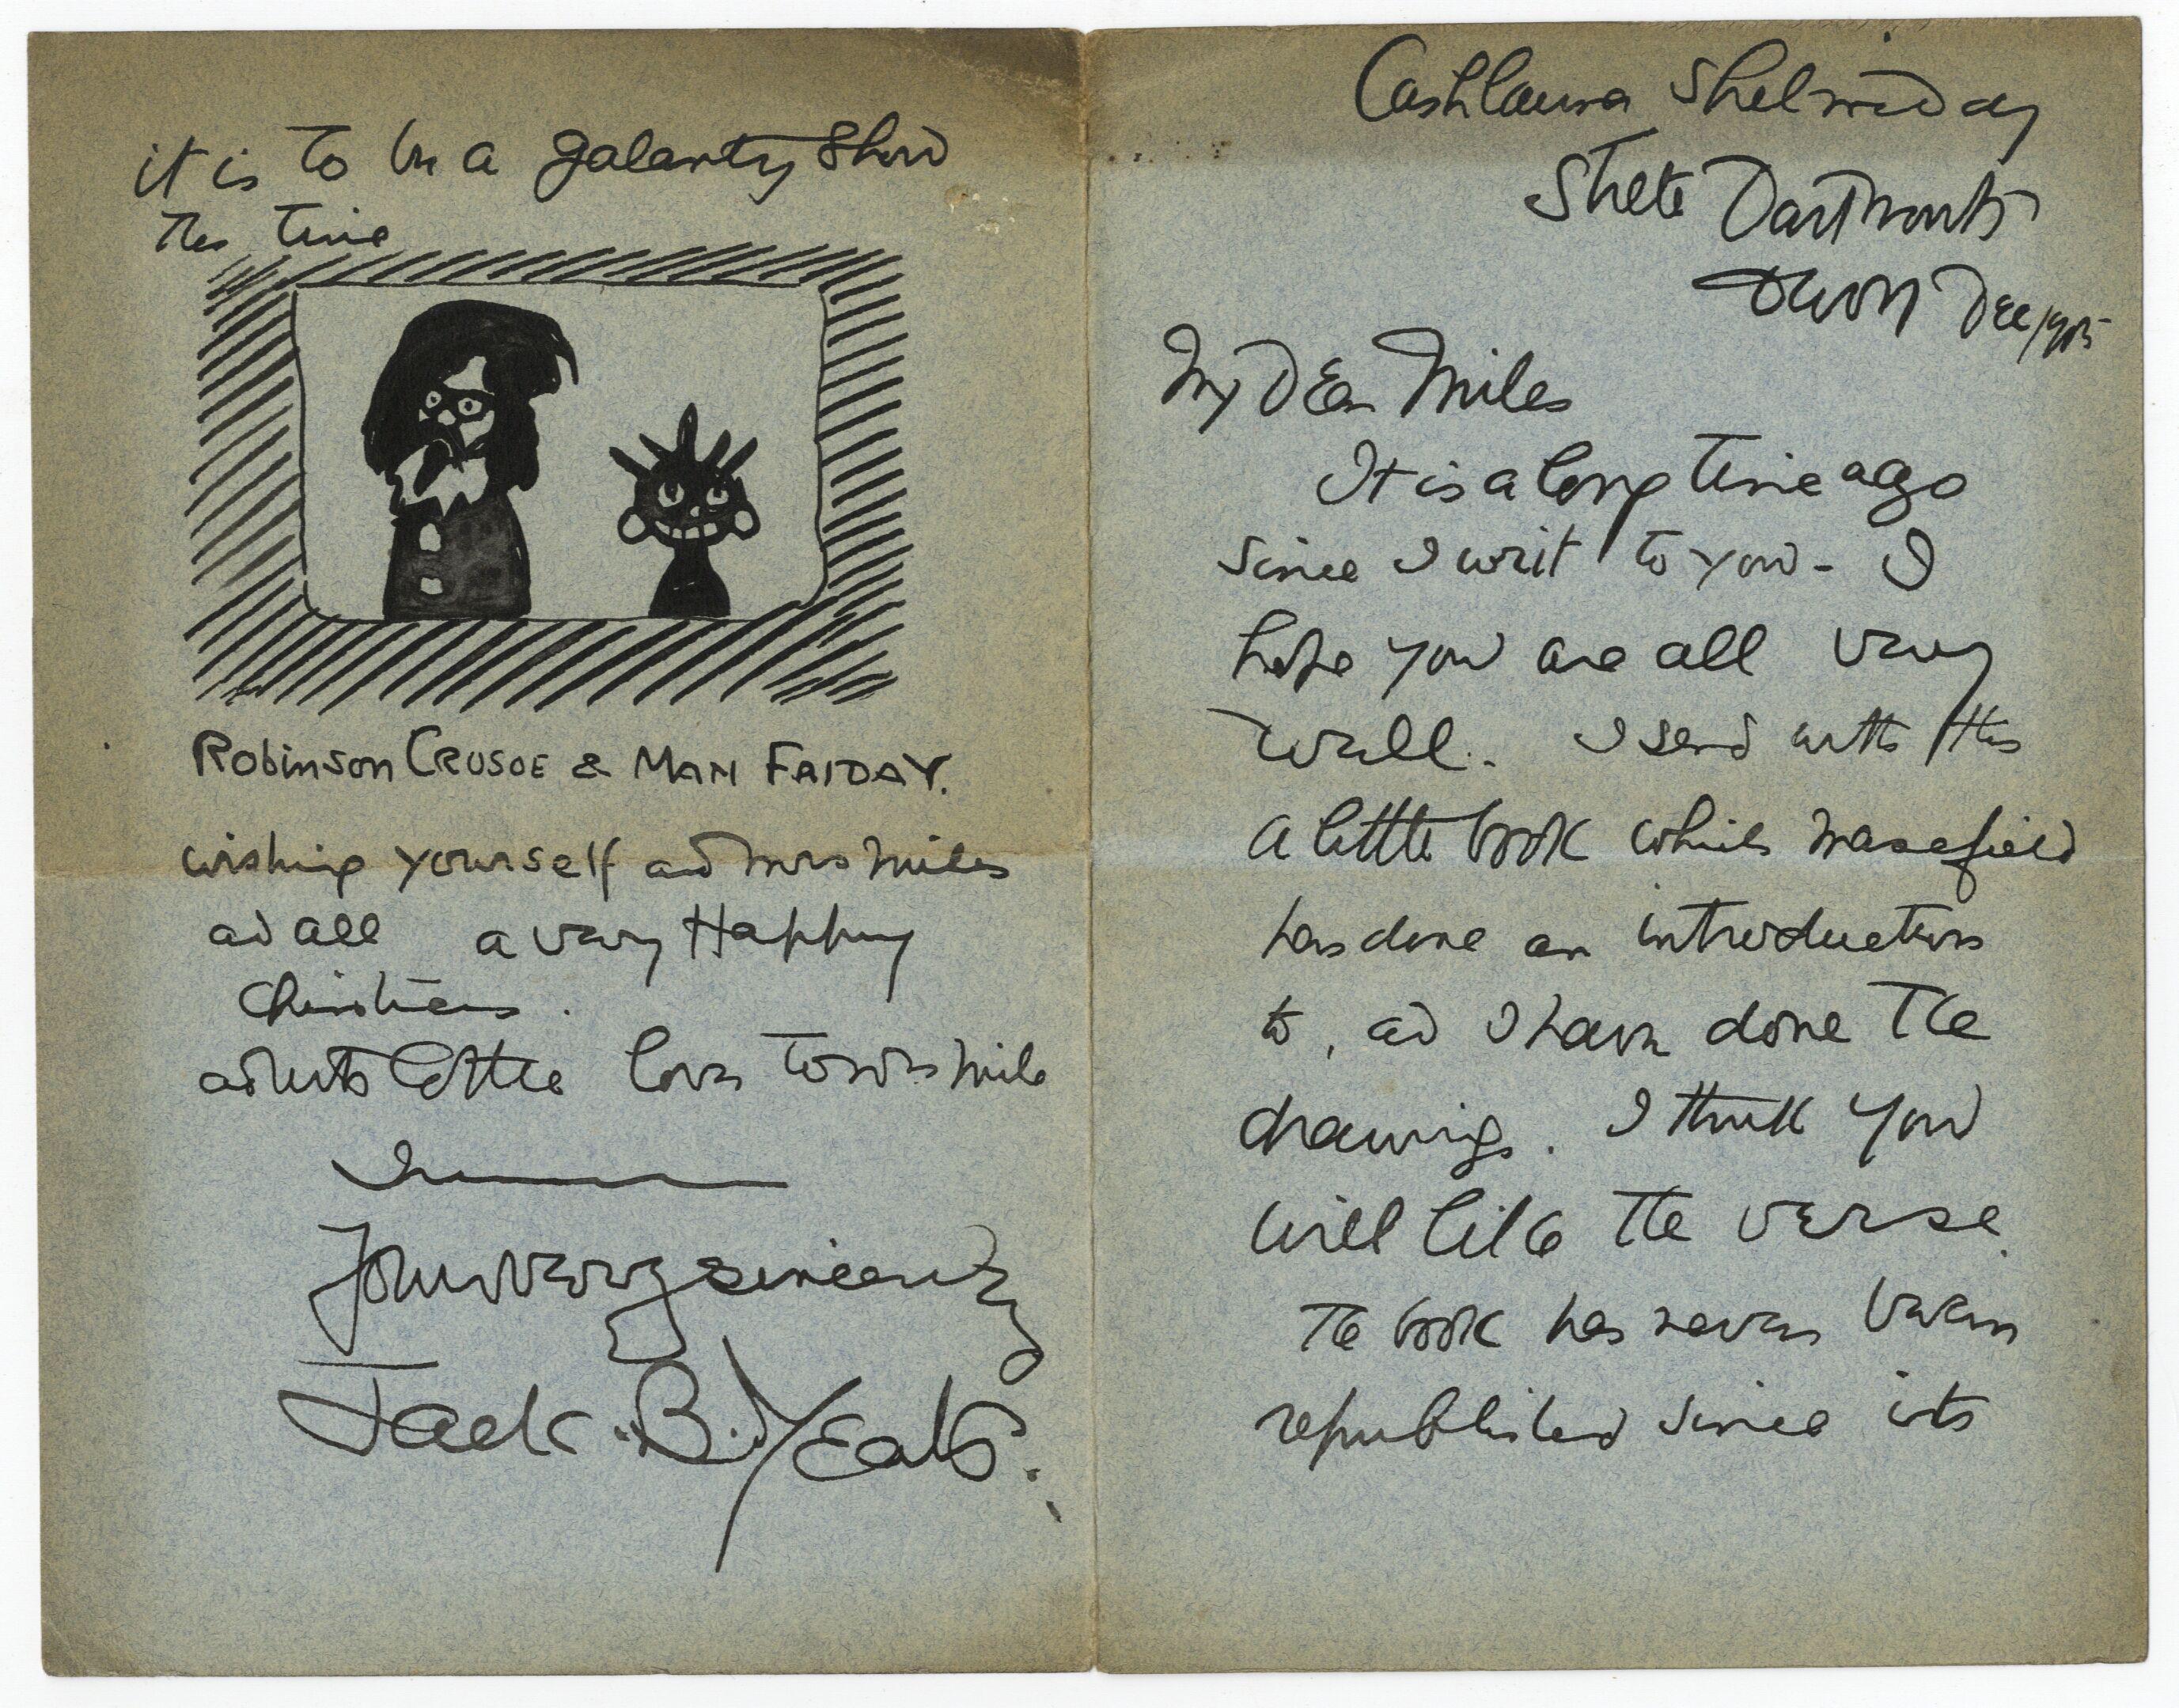 Cashlauna Shelmiddy
Strete Dartmouth
Devon Dec/1905
My Dear Miles
It is a long time ago
since I writ to you - I
hope you are all very
well. I send with this
a little book which Masefield
has done an introduction
to, ad I have done the
drawings. I think you
will like the verse.
The book has never been
republished since its
it is to be a galanty show
this time
Robinson Crusoe & Man Friday.
wishing yourself and Mrs Miles
ad all a very Happy
Christmas.
little love to Miles
Your very sincerely
Jack. B. Yeats.